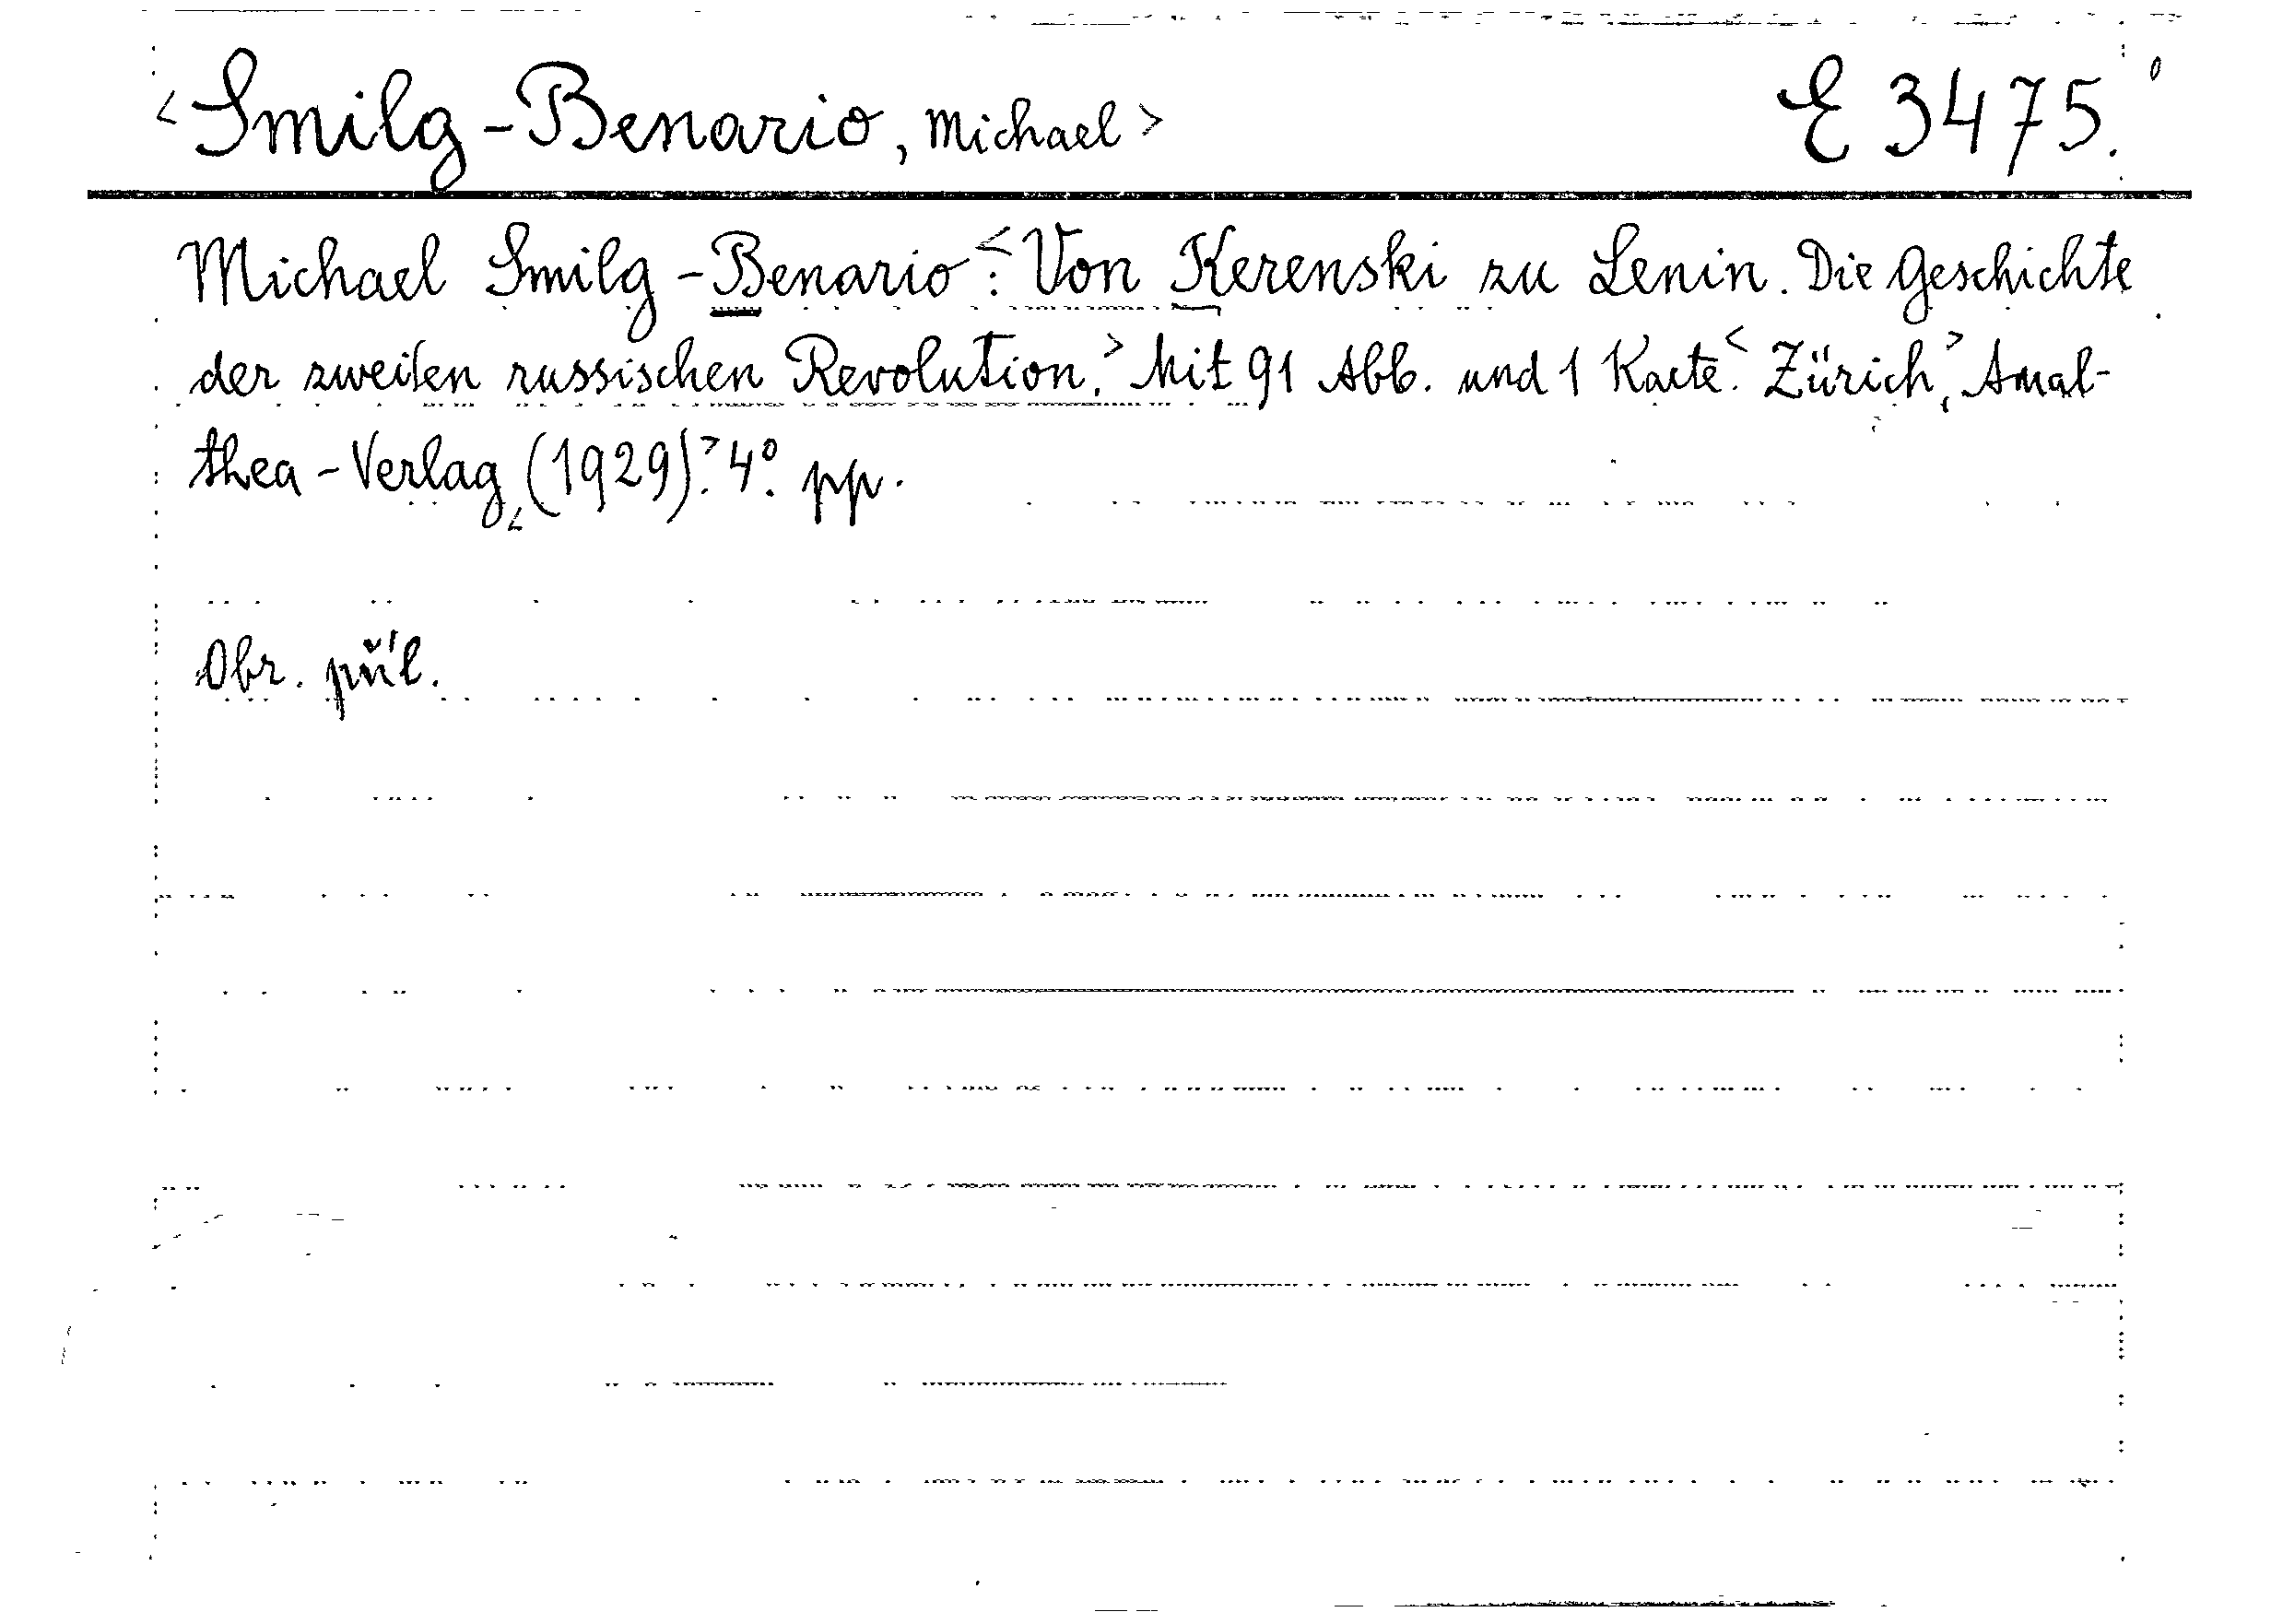 <Smilg-Benario, Michael> E 3475.
Michael Smilg-Benario<: Von Kerenski zu Lenin. Die Geschichte
der zweiten russischen Revolution.> Mit 91 Abb. und 1 Karte.< Zürich,> Amal-
thea-Verlag,<(1929).> 4°. pp.
Obr. příl.